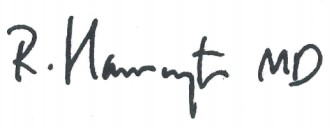 R. Harrington MD